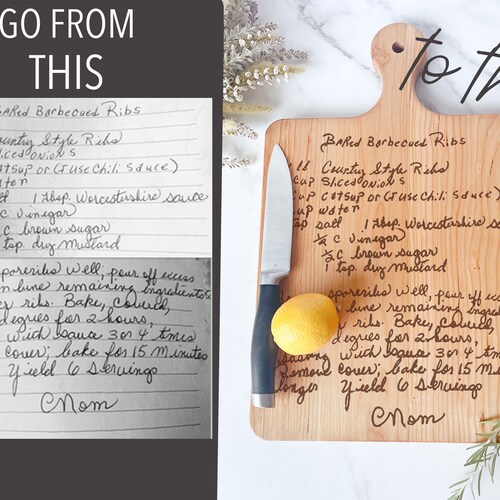 GO FROM
THIS
to th
BARed Barbecued Ribs
ountry Style Ribs
Sliced onions
Catsup or (I use Chili Sauce)
ater
lt 1 Tbsp. Worcestershire sauce
C vinegar
C brown sugar
tsp. dry Mustard
spareribs well; pour off excess
m bine remaining ingredients
er ribs. Bake, Covered,
degrees for 2 hours,
with sauce 3 or 4 times
cover; bake for 15 Minutes
Yield 6 Servings
Mom
BARed Barbecued Ribs
lb Country Style Ribs
cup Sliced onions
cup Catsup or (I use Chili Sauce)
cup water
tsp salt 1 Tbsp. Worcestershire s
1/4 C vinegar
1/4 C brown sugar
1 tsp dry Mustard
spareribs well; pour off exc
m bine remaining ingre
er ribs. Bake, Covered,
degrees for 2 hours,
with sauce 3 or 4 t
Remove cover; bake for 15 M
longer Yield 6 Servings
Mom